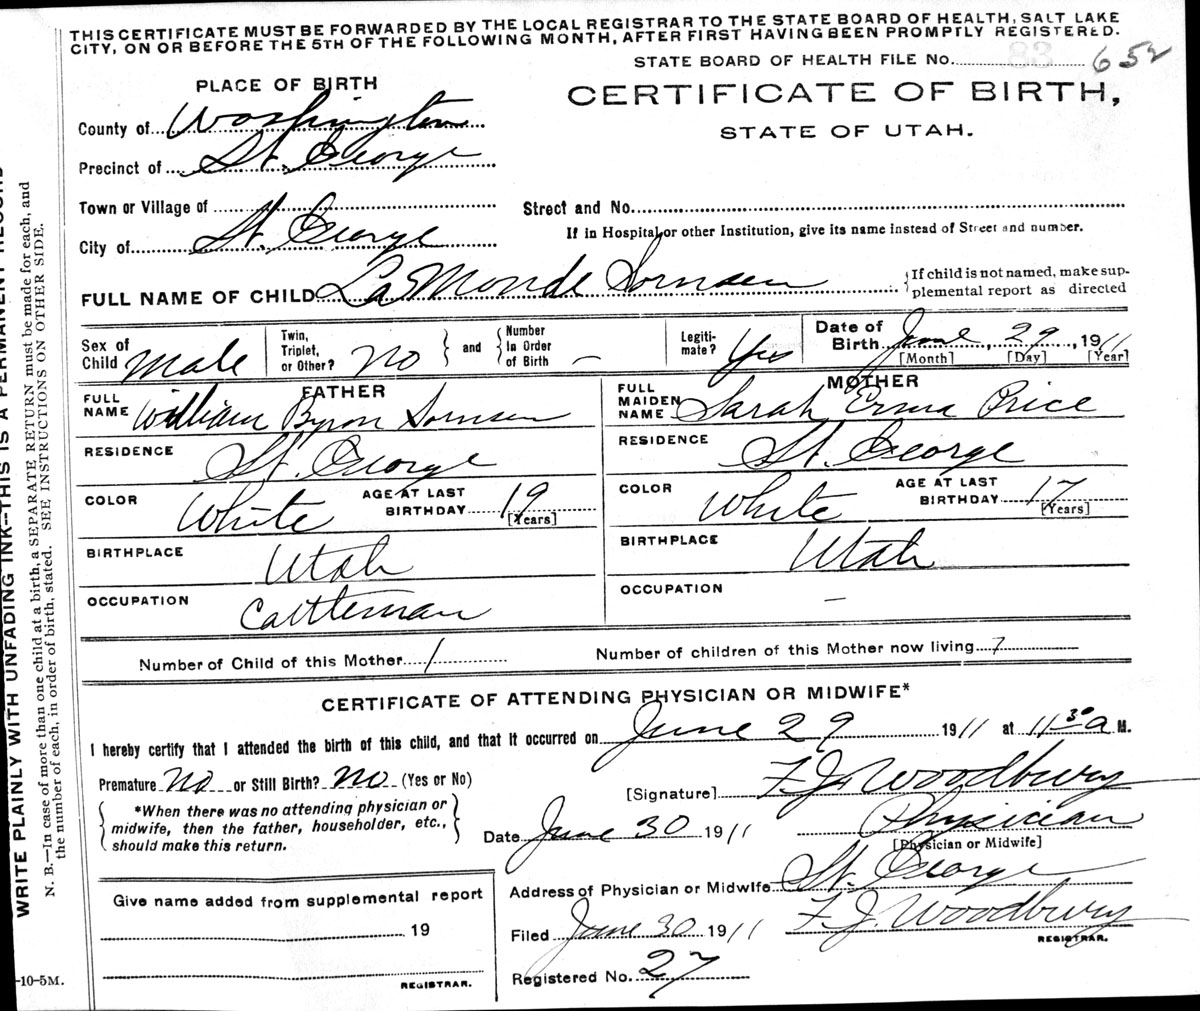 THIS CERTIFICATE MUST BE FORWARDED BY THE LOCAL REGISTRAR TO THE STATE BOARD OF HEALTH, SALT LAKE
CITY, ON OR BEFORE THE 5TH OF THE FOLLOWING MONTH, AFTER FIRST HAVING BEEN PROMPTLY REGISTERED.
STATE BOARD OF HEALTH FILE NO. 83 652
PLACE OF BIRTH
CERTIFICATE OF BIRTH,
STATE OF UTAH.
County of Washington
Precinct of St. George
Town or Village of
Street and No.
City of St. George
If in Hospital or other Institution, give its name instead of Street and number.
FULL NAME OF CHILD La Monde Sornsen
{If child is not named, make sup-
plemental report as directed
Sex of Child Male
Twin, Triplet, or Other? No } and { Number In Order of Birth –
Legiti-mate? Yes
Date of Birth June, 29, 1911
[Month] [Day] [Year]
FATHER
FULL NAME William Byron Sornsen
RESIDENCE St. George
COLOR White AGE AT LAST BIRTHDAY 19 [Years]
BIRTHPLACE Utah
OCCUPATION Cattleman
MOTHER
FULL MAIDEN NAME Sarah Erma Price
RESIDENCE St. George
COLOR White AGE AT LAST BIRTHDAY 17 [Years]
BIRTHPLACE Utah
OCCUPATION –
Number of Child of this Mother 1
Number of children of this Mother now living
CERTIFICATE OF ATTENDING PHYSICIAN OR MIDWIFE*
I hereby certify that I attended the birth of this child, and that it occurred on June 29 1911 at 11 30 a M.
Premature No or Still Birth? No (Yes or No)
{ *When there was no attending physician or
midwife, then the father, householder, etc.,
should make this return. }
[Signature] F. J. Woodbury
Date June 30 1911
Physician
[Physician or Midwife]
Address of Physician or Midwife St. George
Filed June 30 1911 F. J. Woodbury
REGISTRAR.
Registered No. 27
Give name added from supplemental report
19
REGISTRAR.
-10-5M.
WRITE PLAINLY WITH UNFADING INK—THIS IS A PERMANENT RECORD
N. B.—In case of more than one child at a birth, a SEPARATE RETURN must be made for each, and
the number of each, in order of birth, stated. SEE INSTRUCTIONS ON OTHER SIDE.